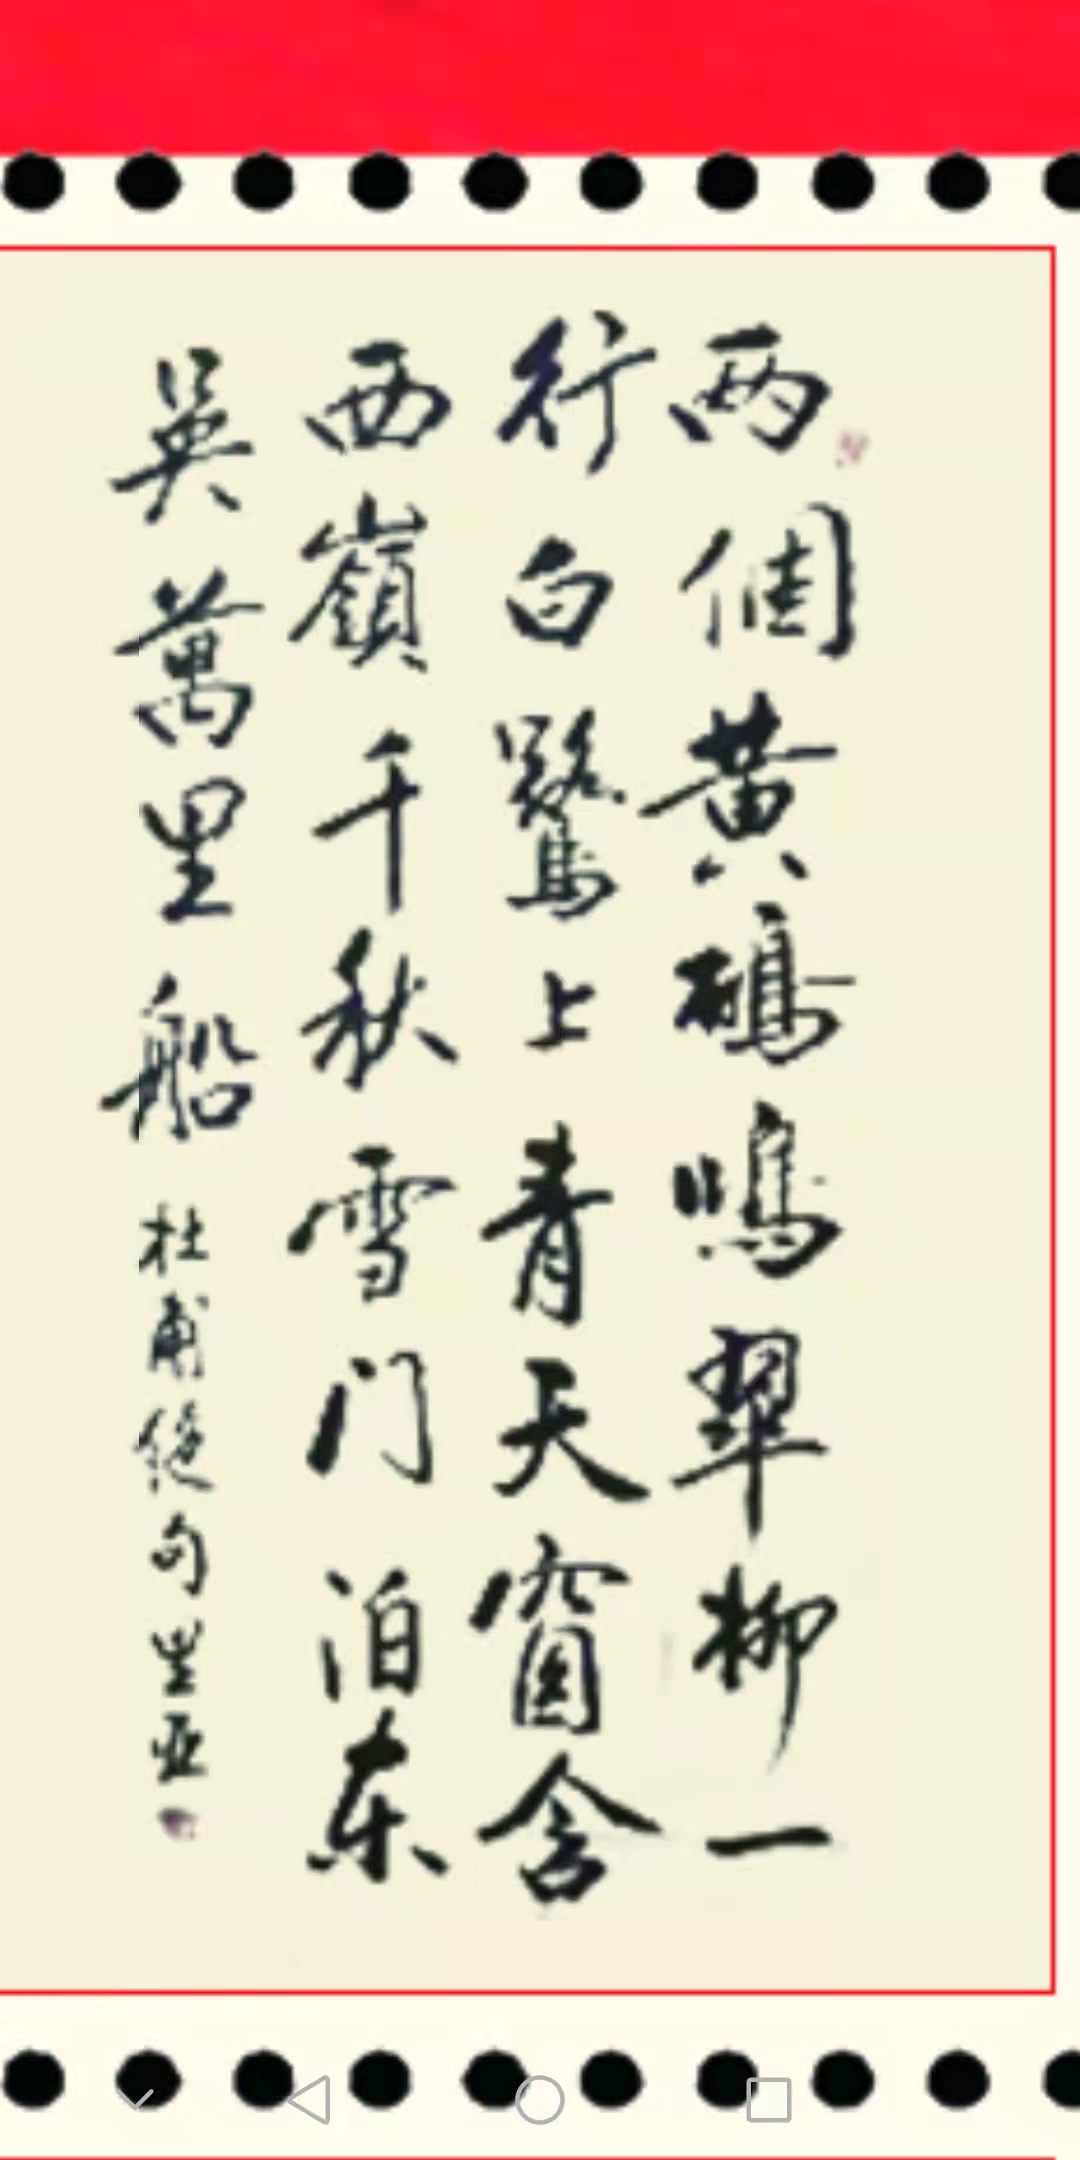 两個黄鸝鳴翠柳一
行白鷺上青天窗含
西嶺千秋雪门泊东
吳萬里船
杜甫绝句生亚